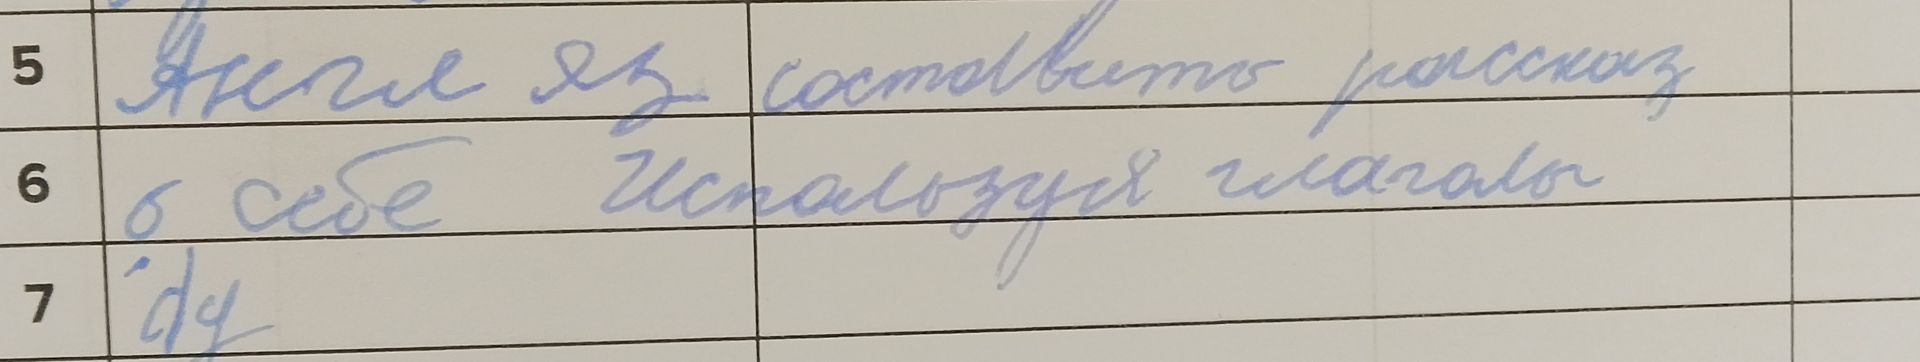 5 Англ яз составить рассказ
6 о себе Используя глаголы
7